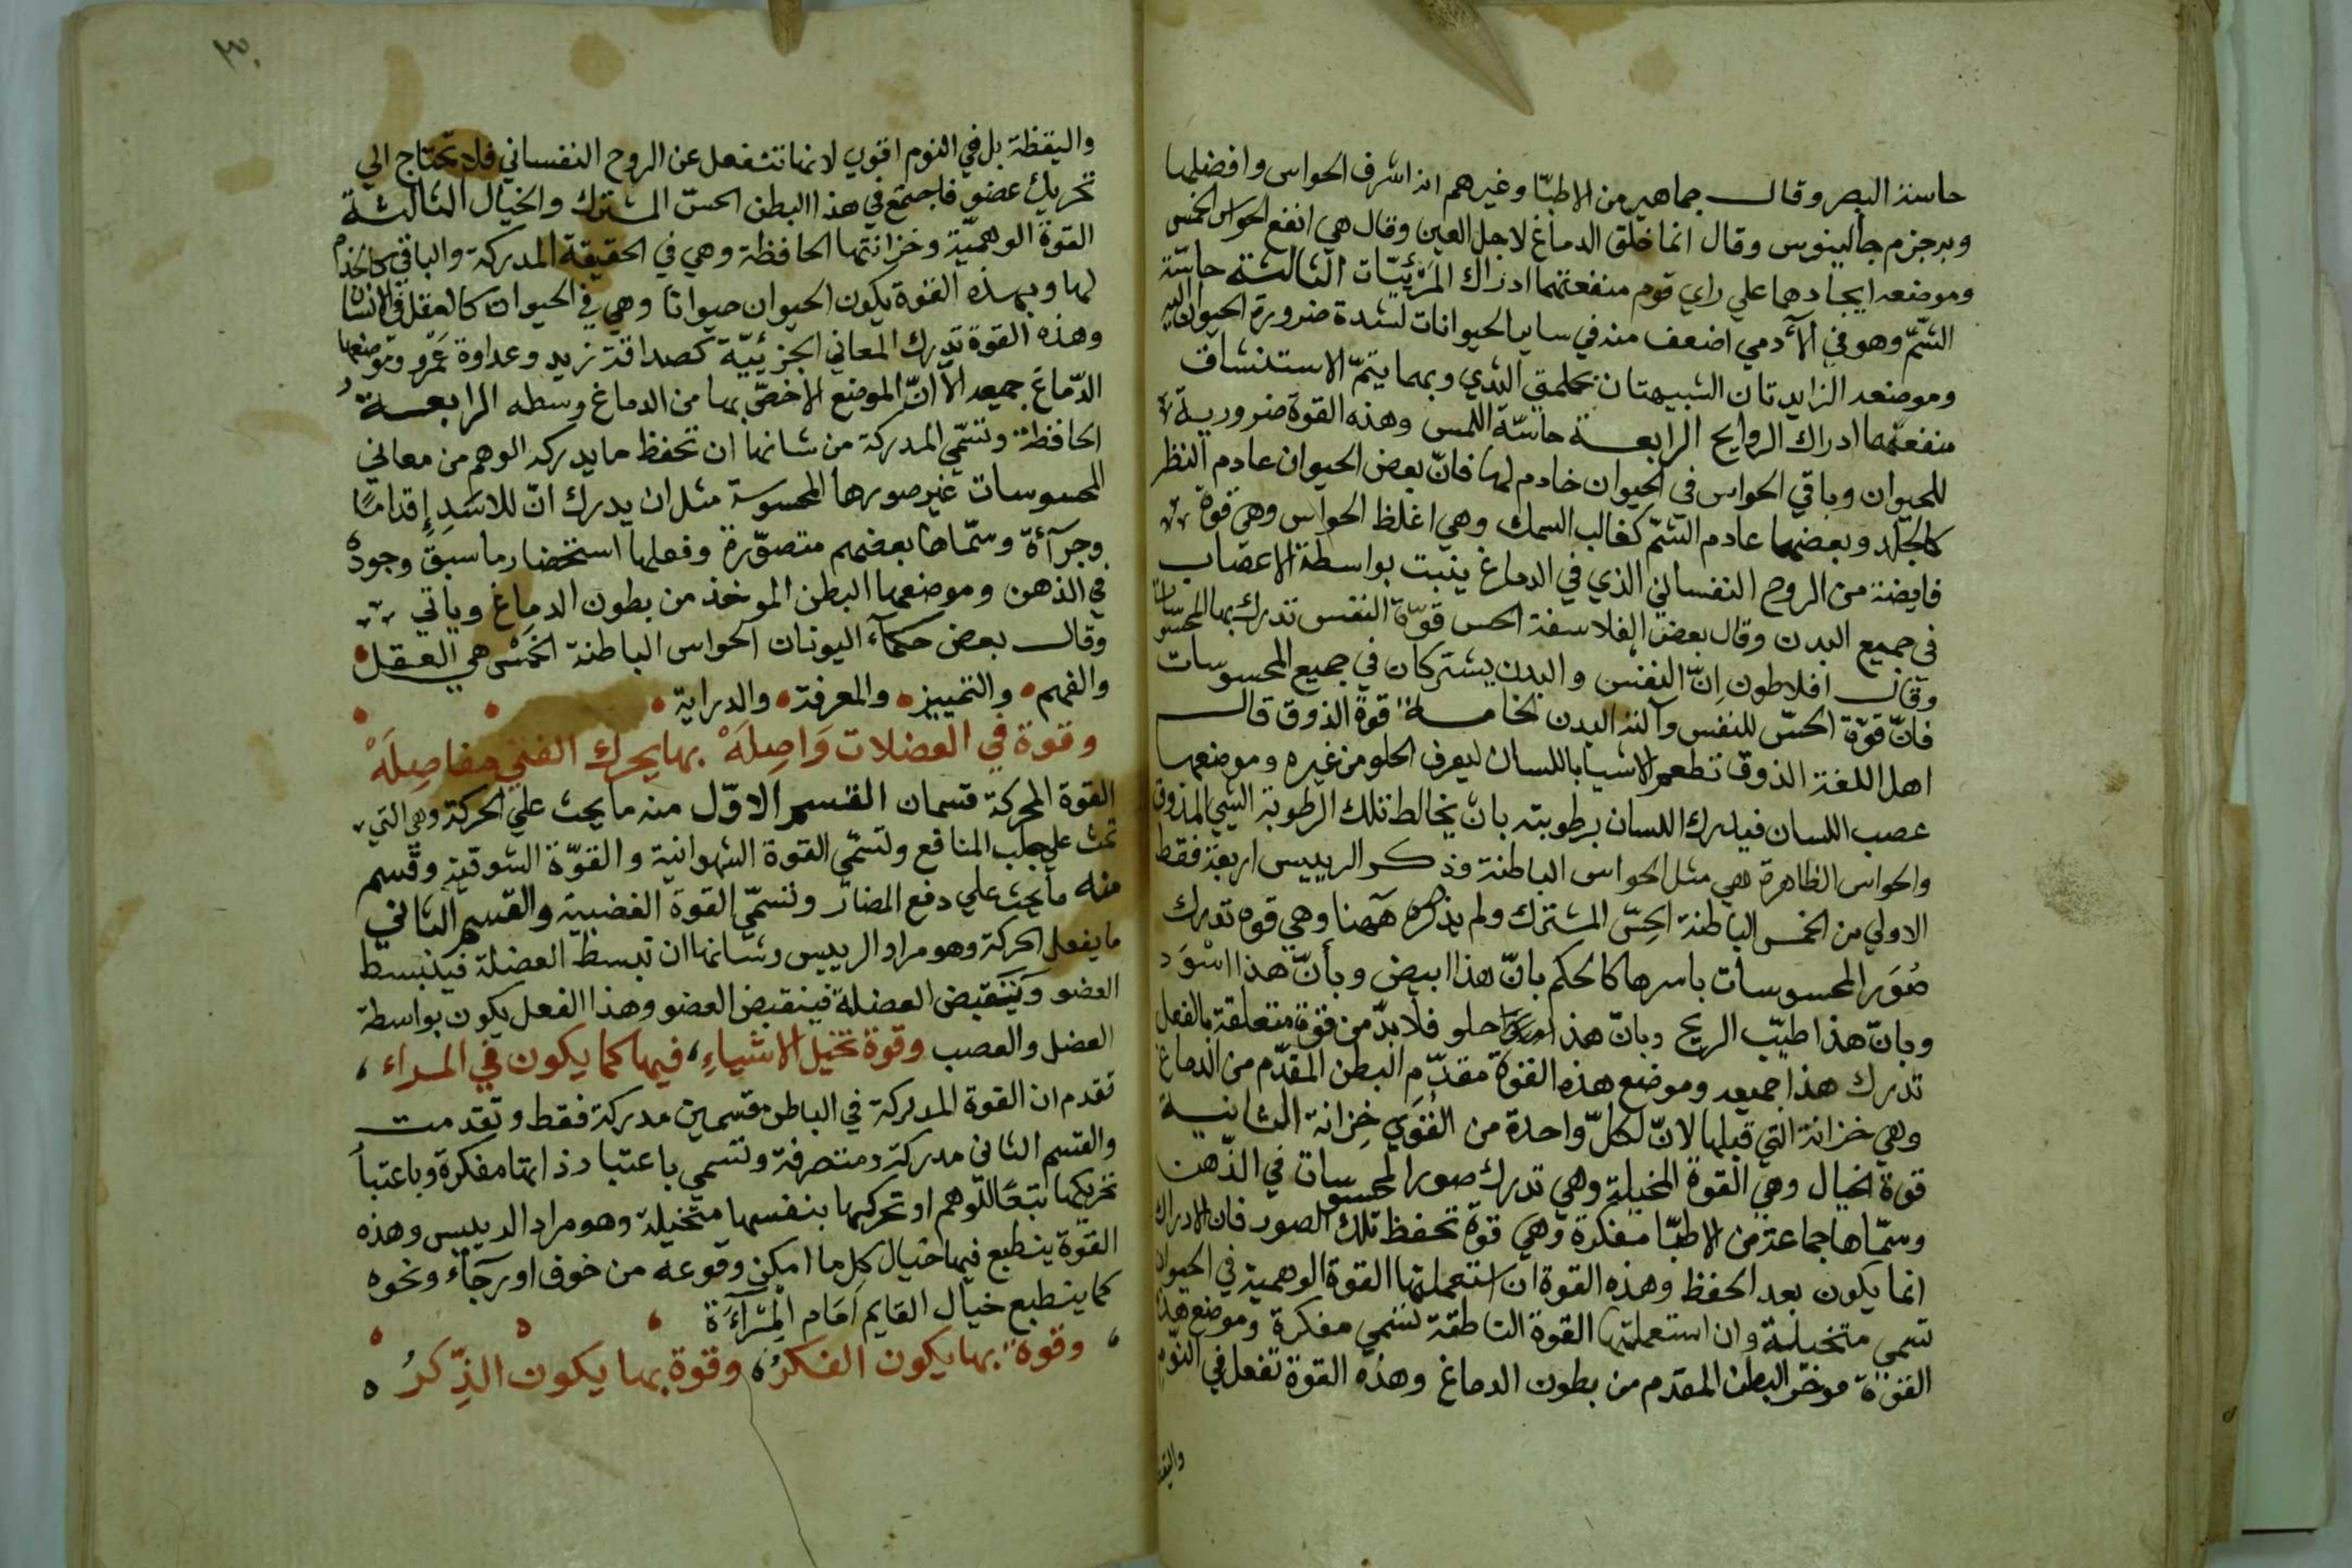 حاسة البصر وقال جماهير من الاطبّا وغيرهم انه اشرف الحواس وافضلها
وبه جزم جالينوس وقال انما خلق الدماغ لاجل العين وقال هي انفع الحواس الخمس
وموضعه ايجادهما علي راي قوم منفعتهما ادراك المَرْئيّات الثالثة حاسّة
الشّمّ وهو في الآدمي اضعف منه في ساير الحيوانات لشدة ضرورة الحيوان اليه
وموضعه الزايدتان الشبيهتان بحلمتي الثدي وبهما يتمّ الاستنشاق
منفعتهما ادراك الروايح الرابعة حاسّة اللمس وهذه القوة ضرورية
للحيوان وباقي الحواس في الحيوان خادم لها فانّ بعض الحيوان عادم النظر
كالخلد وبعضها عادم الشمّ كغالب السمك وهي اغلظ الحواس وهي قوة
فايضة من الروح النفساني الذي في الدماغ ينبت بواسطة الاعصاب
في جميع البدن وقال بعض الفلاسفة الحس قوّة النفس تدرك بها المحسوسات
وقال افلاطون اِنّ النفس والبدن يشتركان في جميع المحسوسات
فانّ قوّة الحسّ للنفس وآلته البدن الخامسة قوة الذوق قال
اهل اللغة الذوق تطعم الاشيا باللسان ليعرف الحلو من غيره وموضعها
عصب اللسان فيدرك اللسان برطوبته بان يخالط تلك الرطوبة الشي المذوق
والحواس الظاهرة هي مثل الحواس الباطنة وذكر الرييس اربعة فقط
الاولي من الخمس الباطنة الحِسّ المشترك ولم يذكره ههنا وهي قوه تدرك
صُوَر المحسوسات باسرها كالحكم بانّ هذا ابيض وبأنّ هذا اسْوَد
وبانّ هذا طيّب الريح وبانّ هذا حلو فلا بدّ من قوة متعلقة بالفعل
تدرك هذا جميعه وموضع هذه القوة مقدّم البطن المقدّم من الدماغ
وهي خزانة التي قبلها لانّ لكلّ واحدة من القُوَي خِزانة الثانية
قوة الخيال وهي القوة المخيلة وهي تدرك صور المحسوسات في الذّهن
وسمّاها جماعة من الاطبّا مفكرة وهي قوة تحفظ تلك الصور فان الادراك
انما يكون بعد الحفظ وهذه القوة ان استعملتها القوة الوهمية في الحيوان
تسمي متخيلة وان استعملتها القوة الناطقة تسمي مفكرة وموضع هذه
القوّة موخر البطن المقدم من بطون الدماغ وهذه القوة تفعل في النوم
واليقظة
واليقظة بل في النوم اقوي لانها تنفعل عن الروح النفساني فلا تحتاج الي
تحريك عضو فاجتمع في هذا البطن الحسّ المشترك والخيال الثالثة
القوة الوهميّة وخزانتها الحافظة وهي في الحقيقة المدركة والباقي كالخدم
لها وبهذه القوة يكون الحيوان حيوانا وهي في الحيوان كالعقل في الانسان
وهذه القوة تدرك المعاني الجزئييّة كصداقة زيد وعداوة عَمْرو وموضعها
الدّماغ جميعه الّا انّ الموضع الاخصّ بها من الدماغ وسطه الرابعة
الحافظة وتسمّي المدركة من شانها ان تحفظ ما يدركه الوهم من معاني
المحسوسات غير صورها المحسوسة مثل ان يدرك انّ للاسَدِ إقدامًا
وجرآءة وسمّاها بعضهم متصوّرة وفعلها استحضار ما سبق وجوده
في الذهن وموضعها البطن الموخذ من بطون الدماغ وياتي
وقال بعض حكمآء اليونان الحواس الباطنة الخَمْس هي العقل
والفهم والتمييز والمعرفة والدراية
وقوة في العضلات وَاصِلَهْ بها يحرك الفتي مفاصِلَهْ
القوة المحركة قسمان القسم الاوّل منه ما يحث علي الحركة وهي التي
تحث علي جلب المنافع وتسمّي القوة الشهوانية والقوّة الشوقية وقسم
منه ما يحث علي دفع المضارّ وتسمّي القوة الغضبية والقسم الثاني
ما يفعل الحركة وهو مراد الرييس وشانها ان تبسط العضلة فينبسط
العضو وتقبض العضلة فينقبض العضو وهذا الفعل يكون بواسطة
العضل والعصب وقوة تخيل الاشياءِ، فيها كما يكون في المراء،
تقدم ان القوة المدركة في الباطن قسمين مدركة فقط وتقدمت
والقسم الثاني مدركة ومتصرفة وتسمي باعتبار ذاتها مفكرة وباعتبا
تحريكها تبعًا للوهم او تحركها بنفسها متخيلة وهو مراد الرييس وهذه
القوة ينطبع فيها خيال كل ما امكن وقوعه من خوف او رجآء ونحوه
كما ينطبع خيال القايم اَمَام المِرْآءَة
وقوة بها يكون الفكرُ، وقوة بها يكون الذِّكرُ